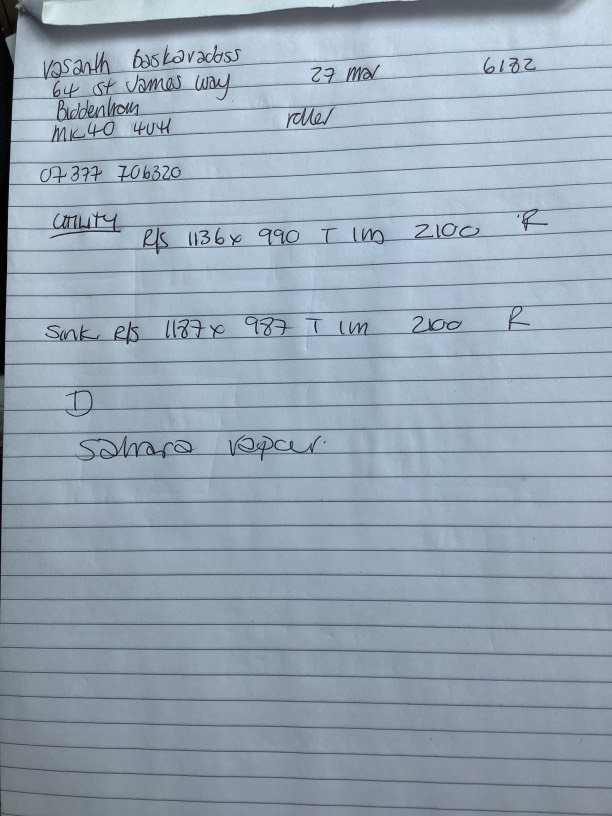 Vasanth baskaradoss
64 st James way 27 mar 6182
Biddenham
MK40 4UH roller
07377 706320
Utility
R/S 1136 x 990 T 1m 2100 R
Sink R/S 1187 x 987 T 1m 2100 R
D
Sahara vapour.